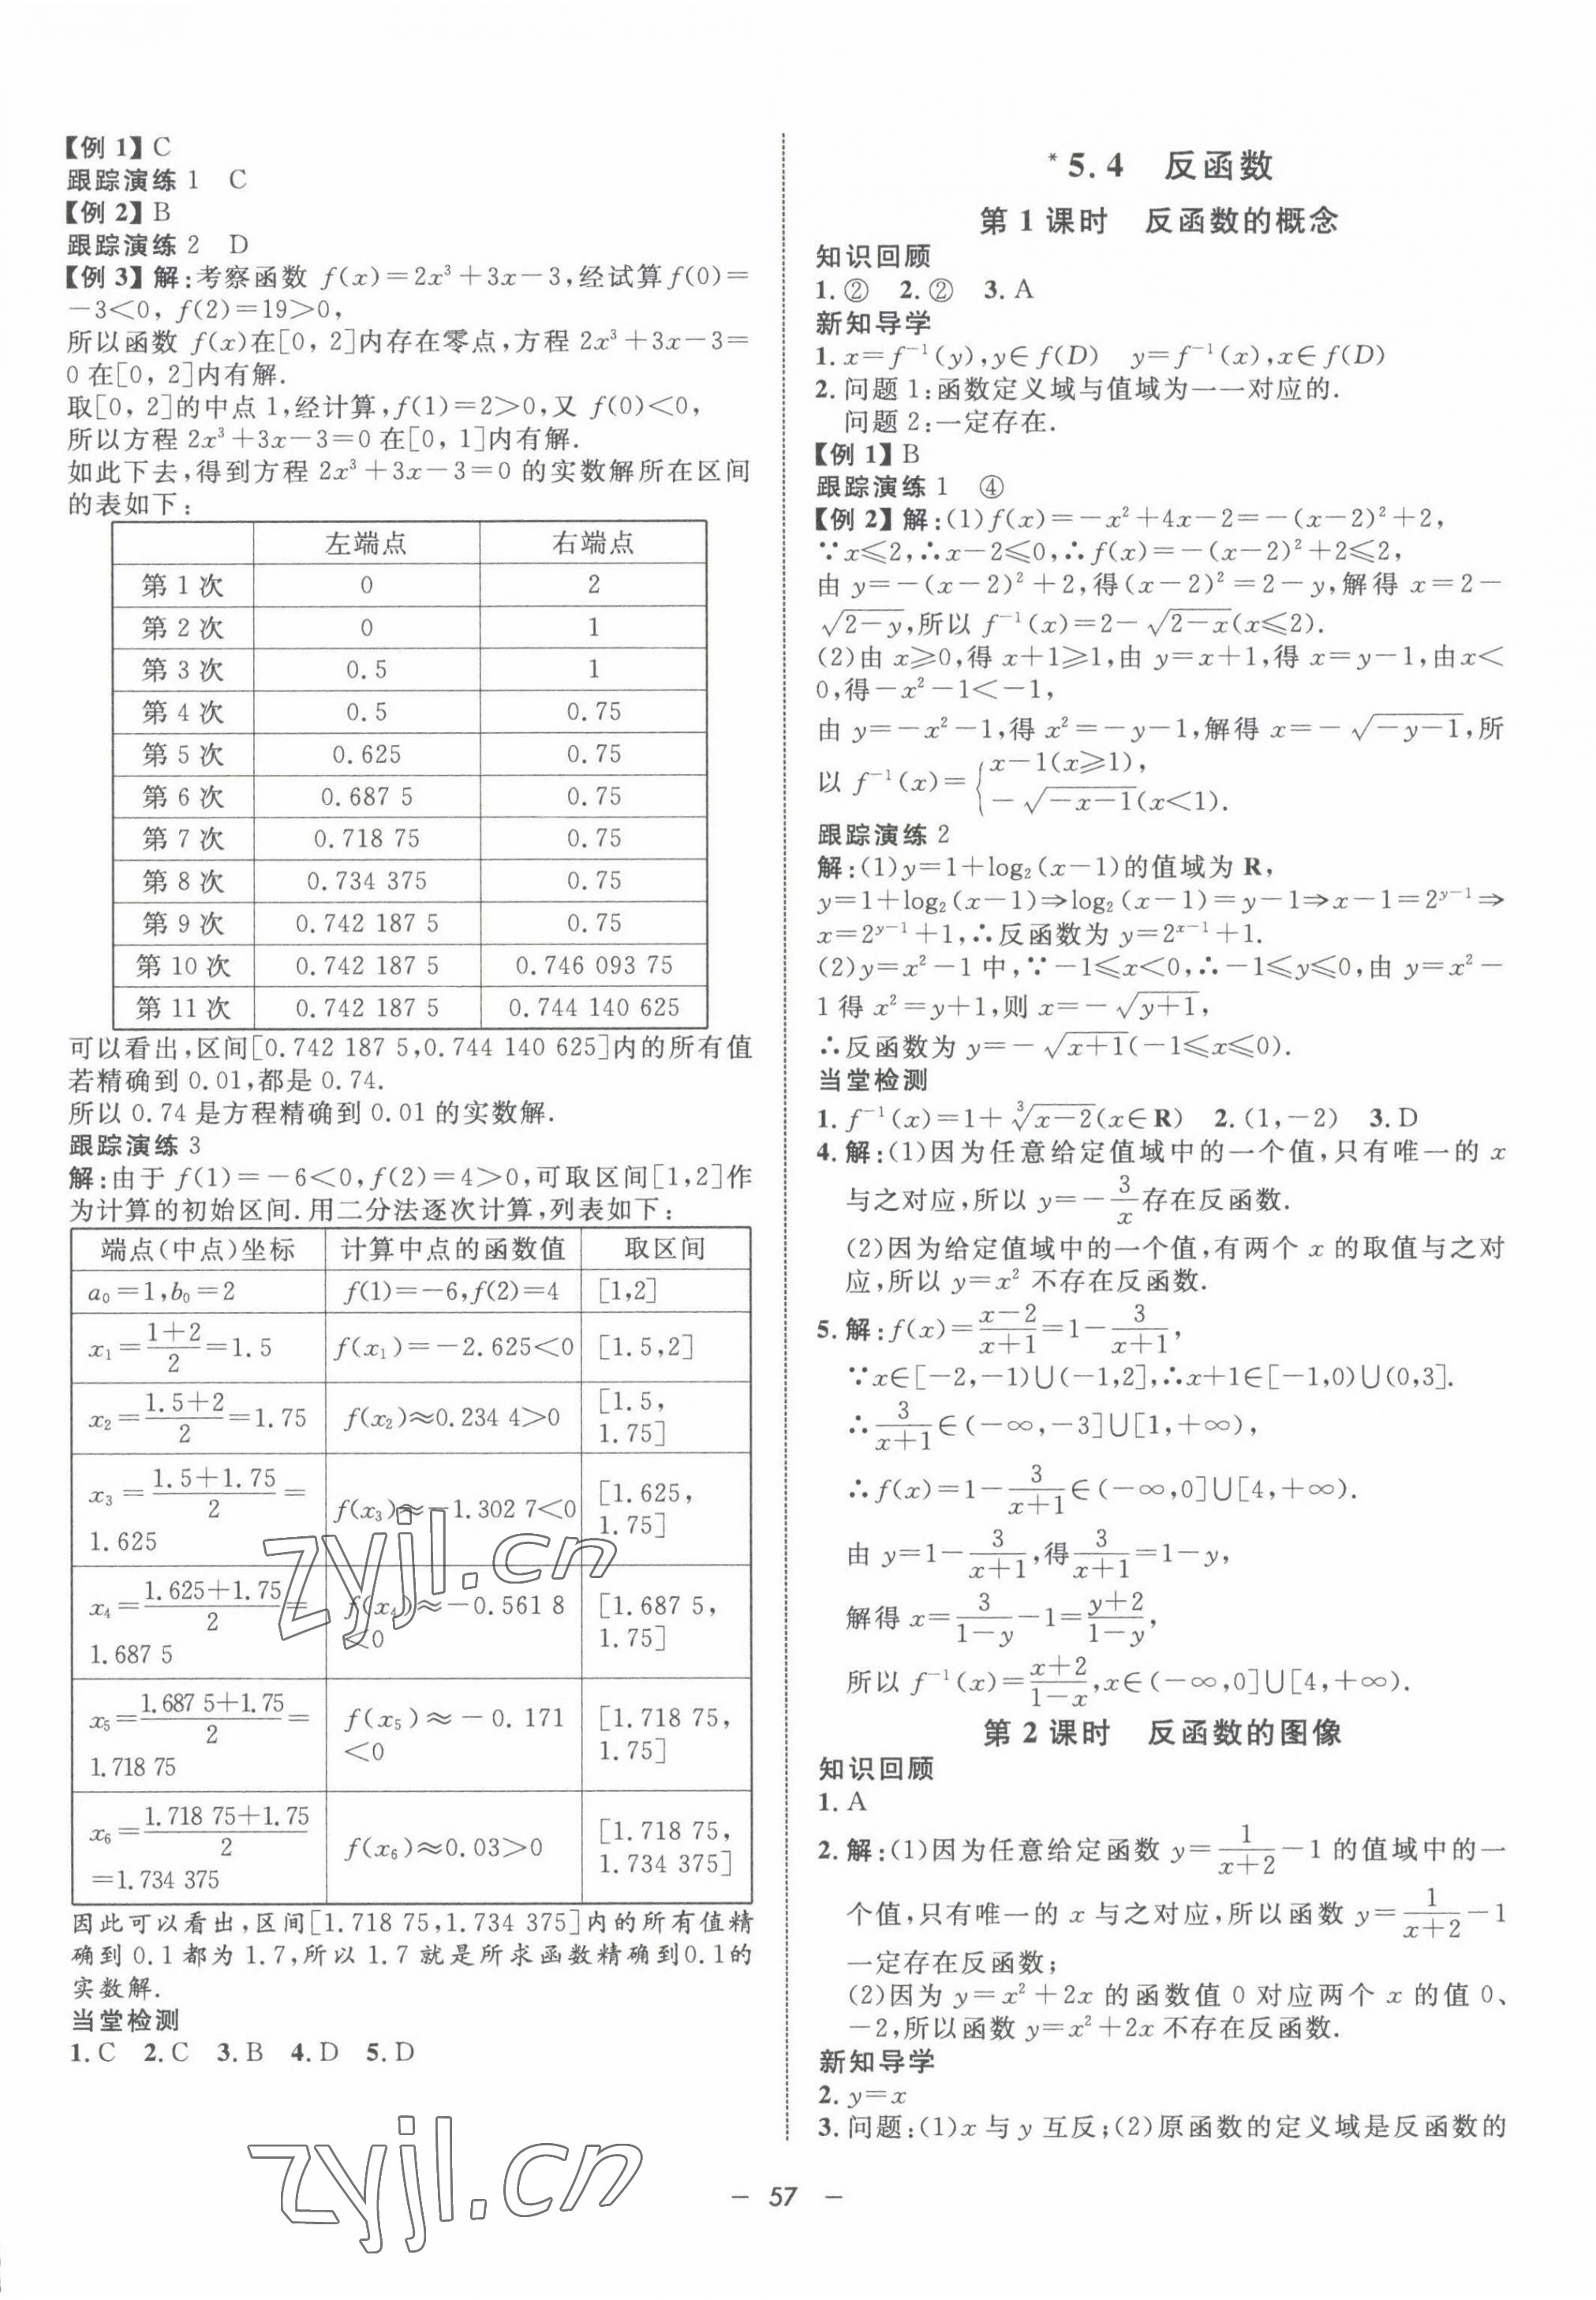 【例 1】C
跟踪演练 1　C
【例 2】B
跟踪演练 2　D
【例 3】解:考察函数 f(x)=2x³+3x-3,经试算 f(0)=
-3<0, f(2)=19>0,
所以函数 f(x)在[0, 2]内存在零点,方程 2x³+3x-3=
0 在[0, 2]内有解.
取[0, 2]的中点 1,经计算,f(1)=2>0,又 f(0)<0,
所以方程 2x³+3x-3=0 在[0, 1]内有解.
如此下去,得到方程 2x³+3x-3=0 的实数解所在区间
的表如下:
左端点　右端点
第 1 次　0　2
第 2 次　0　1
第 3 次　0.5　1
第 4 次　0.5　0.75
第 5 次　0.625　0.75
第 6 次　0.687 5　0.75
第 7 次　0.718 75　0.75
第 8 次　0.734 375　0.75
第 9 次　0.742 187 5　0.75
第 10 次　0.742 187 5　0.746 093 75
第 11 次　0.742 187 5　0.744 140 625
可以看出,区间[0.742 187 5,0.744 140 625]内的所有值
若精确到 0.01,都是 0.74.
所以 0.74 是方程精确到 0.01 的实数解.
跟踪演练 3
解:由于 f(1)=-6<0,f(2)=4>0,可取区间[1,2]作
为计算的初始区间.用二分法逐次计算,列表如下:
端点(中点)坐标　计算中点的函数值　取区间
a₀=1,b₀=2　f(1)=-6,f(2)=4　[1,2]
x₁=(1+2)/2=1.5　f(x₁)=-2.625<0　[1.5,2]
x₂=(1.5+2)/2=1.75　f(x₂)≈0.234 4>0　[1.5, 1.75]
x₃=(1.5+1.75)/2=1.625　f(x₃)≈-1.302 7<0　[1.625, 1.75]
x₄=(1.625+1.75)/2=1.687 5　f(x₄)≈-0.561 8<0　[1.687 5, 1.75]
x₅=(1.687 5+1.75)/2=1.718 75　f(x₅)≈-0.171<0　[1.718 75, 1.75]
x₆=(1.718 75+1.75)/2=1.734 375　f(x₆)≈0.03>0　[1.718 75, 1.734 375]
因此可以看出,区间[1.718 75,1.734 375]内的所有值精
确到 0.1 都为 1.7,所以 1.7 就是所求函数精确到0.1的
实数解.
当堂检测
1.C　2.C　3.B　4.D　5.D
*5.4　反函数
第 1 课时　反函数的概念
知识回顾
1.②　2.②　3.A
新知导学
1.x=f⁻¹(y),y∈f(D)　y=f⁻¹(x),x∈f(D)
2.问题 1:函数定义域与值域为一一对应的.
问题 2:一定存在.
【例 1】B
跟踪演练 1　④
【例 2】解:(1)f(x)=-x²+4x-2=-(x-2)²+2,
∵x≤2,∴x-2≤0,∴f(x)=-(x-2)²+2≤2,
由 y=-(x-2)²+2,得(x-2)²=2-y,解得 x=2-
√(2-y),所以 f⁻¹(x)=2-√(2-x)(x≤2).
(2)由 x≥0,得 x+1≥1,由 y=x+1,得 x=y-1,由x<
0,得-x²-1<-1,
由 y=-x²-1,得 x²=-y-1,解得 x=-√(-y-1),所
以 f⁻¹(x)={x-1(x≥1),
-√(-x-1)(x<1).
跟踪演练 2
解:(1)y=1+log₂(x-1)的值域为 R,
y=1+log₂(x-1)⇒log₂(x-1)=y-1⇒x-1=2^(y-1)⇒
x=2^(y-1)+1,∴反函数为 y=2^(x-1)+1.
(2)y=x²-1 中,∵-1≤x<0,∴-1≤y≤0,由 y=x²-
1 得 x²=y+1,则 x=-√(y+1),
∴反函数为 y=-√(x+1)(-1≤x≤0).
当堂检测
1.f⁻¹(x)=1+∛(x-2)(x∈R)　2.(1,-2)　3.D
4.解:(1)因为任意给定值域中的一个值,只有唯一的 x
与之对应,所以 y=-3/x 存在反函数.
(2)因为给定值域中的一个值,有两个 x 的取值与之对
应,所以 y=x² 不存在反函数.
5.解:f(x)=(x-2)/(x+1)=1-3/(x+1),
∵x∈[-2,-1)∪(-1,2],∴x+1∈[-1,0)∪(0,3].
∴3/(x+1)∈(-∞,-3]∪[1,+∞),
∴f(x)=1-3/(x+1)∈(-∞,0]∪[4,+∞).
由 y=1-3/(x+1),得3/(x+1)=1-y,
解得 x=3/(1-y)-1=(y+2)/(1-y),
所以 f⁻¹(x)=(x+2)/(1-x),x∈(-∞,0]∪[4,+∞).
第 2 课时　反函数的图像
知识回顾
1.A
2.解:(1)因为任意给定函数 y=1/(x+2)-1 的值域中的一
个值,只有唯一的 x 与之对应,所以函数 y=1/(x+2)-1
一定存在反函数;
(2)因为 y=x²+2x 的函数值 0 对应两个 x 的值 0、
-2,所以函数 y=x²+2x 不存在反函数.
新知导学
2.y=x
3.问题:(1)x 与 y 互反;(2)原函数的定义域是反函数的
— 57 —
zyjl.cn
zyjl.cn